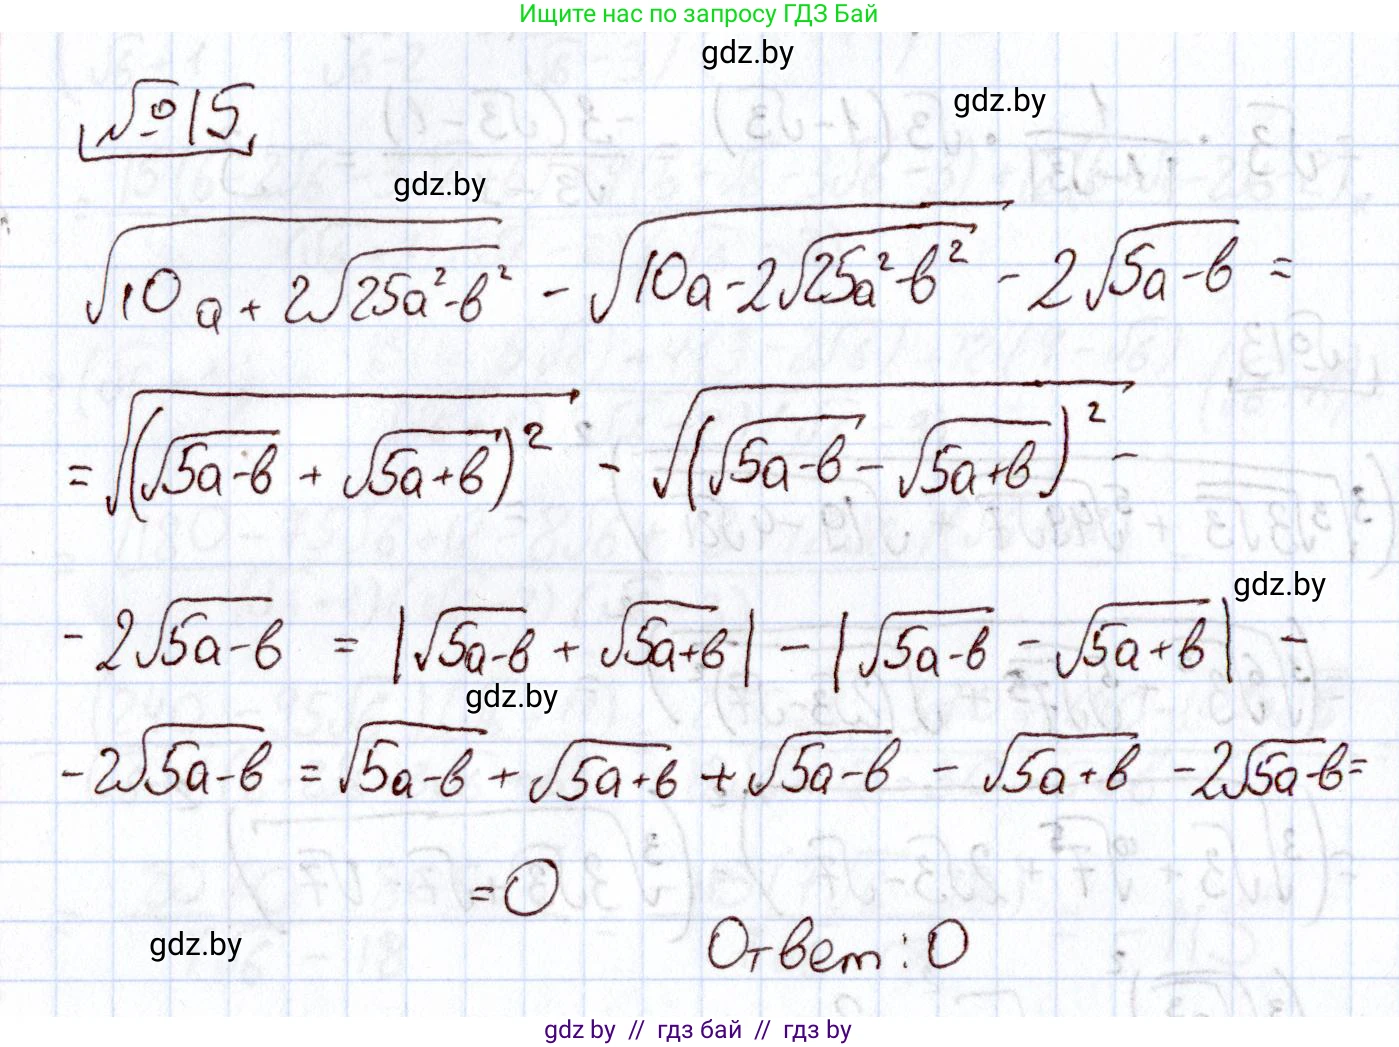 Ищите нас по запросу ГДЗ Бай
gdz.by
gdz.by
№15
gdz.by
√(10a + 2√(25a²-b²)) - √(10a - 2√(25a²-b²)) - 2√(5a-b) =
= √((√(5a-b) + √(5a+b))²) - √((√(5a-b) - √(5a+b))²) -
gdz.by
- 2√(5a-b) = |√(5a-b) + √(5a+b)| - |√(5a-b) - √(5a+b)| -
gdz.by
- 2√(5a-b) = √(5a-b) + √(5a+b) + √(5a-b) - √(5a+b) - 2√(5a-b) =
= 0
gdz.by
Ответ: 0
gdz.by // гдз бай // гдз by